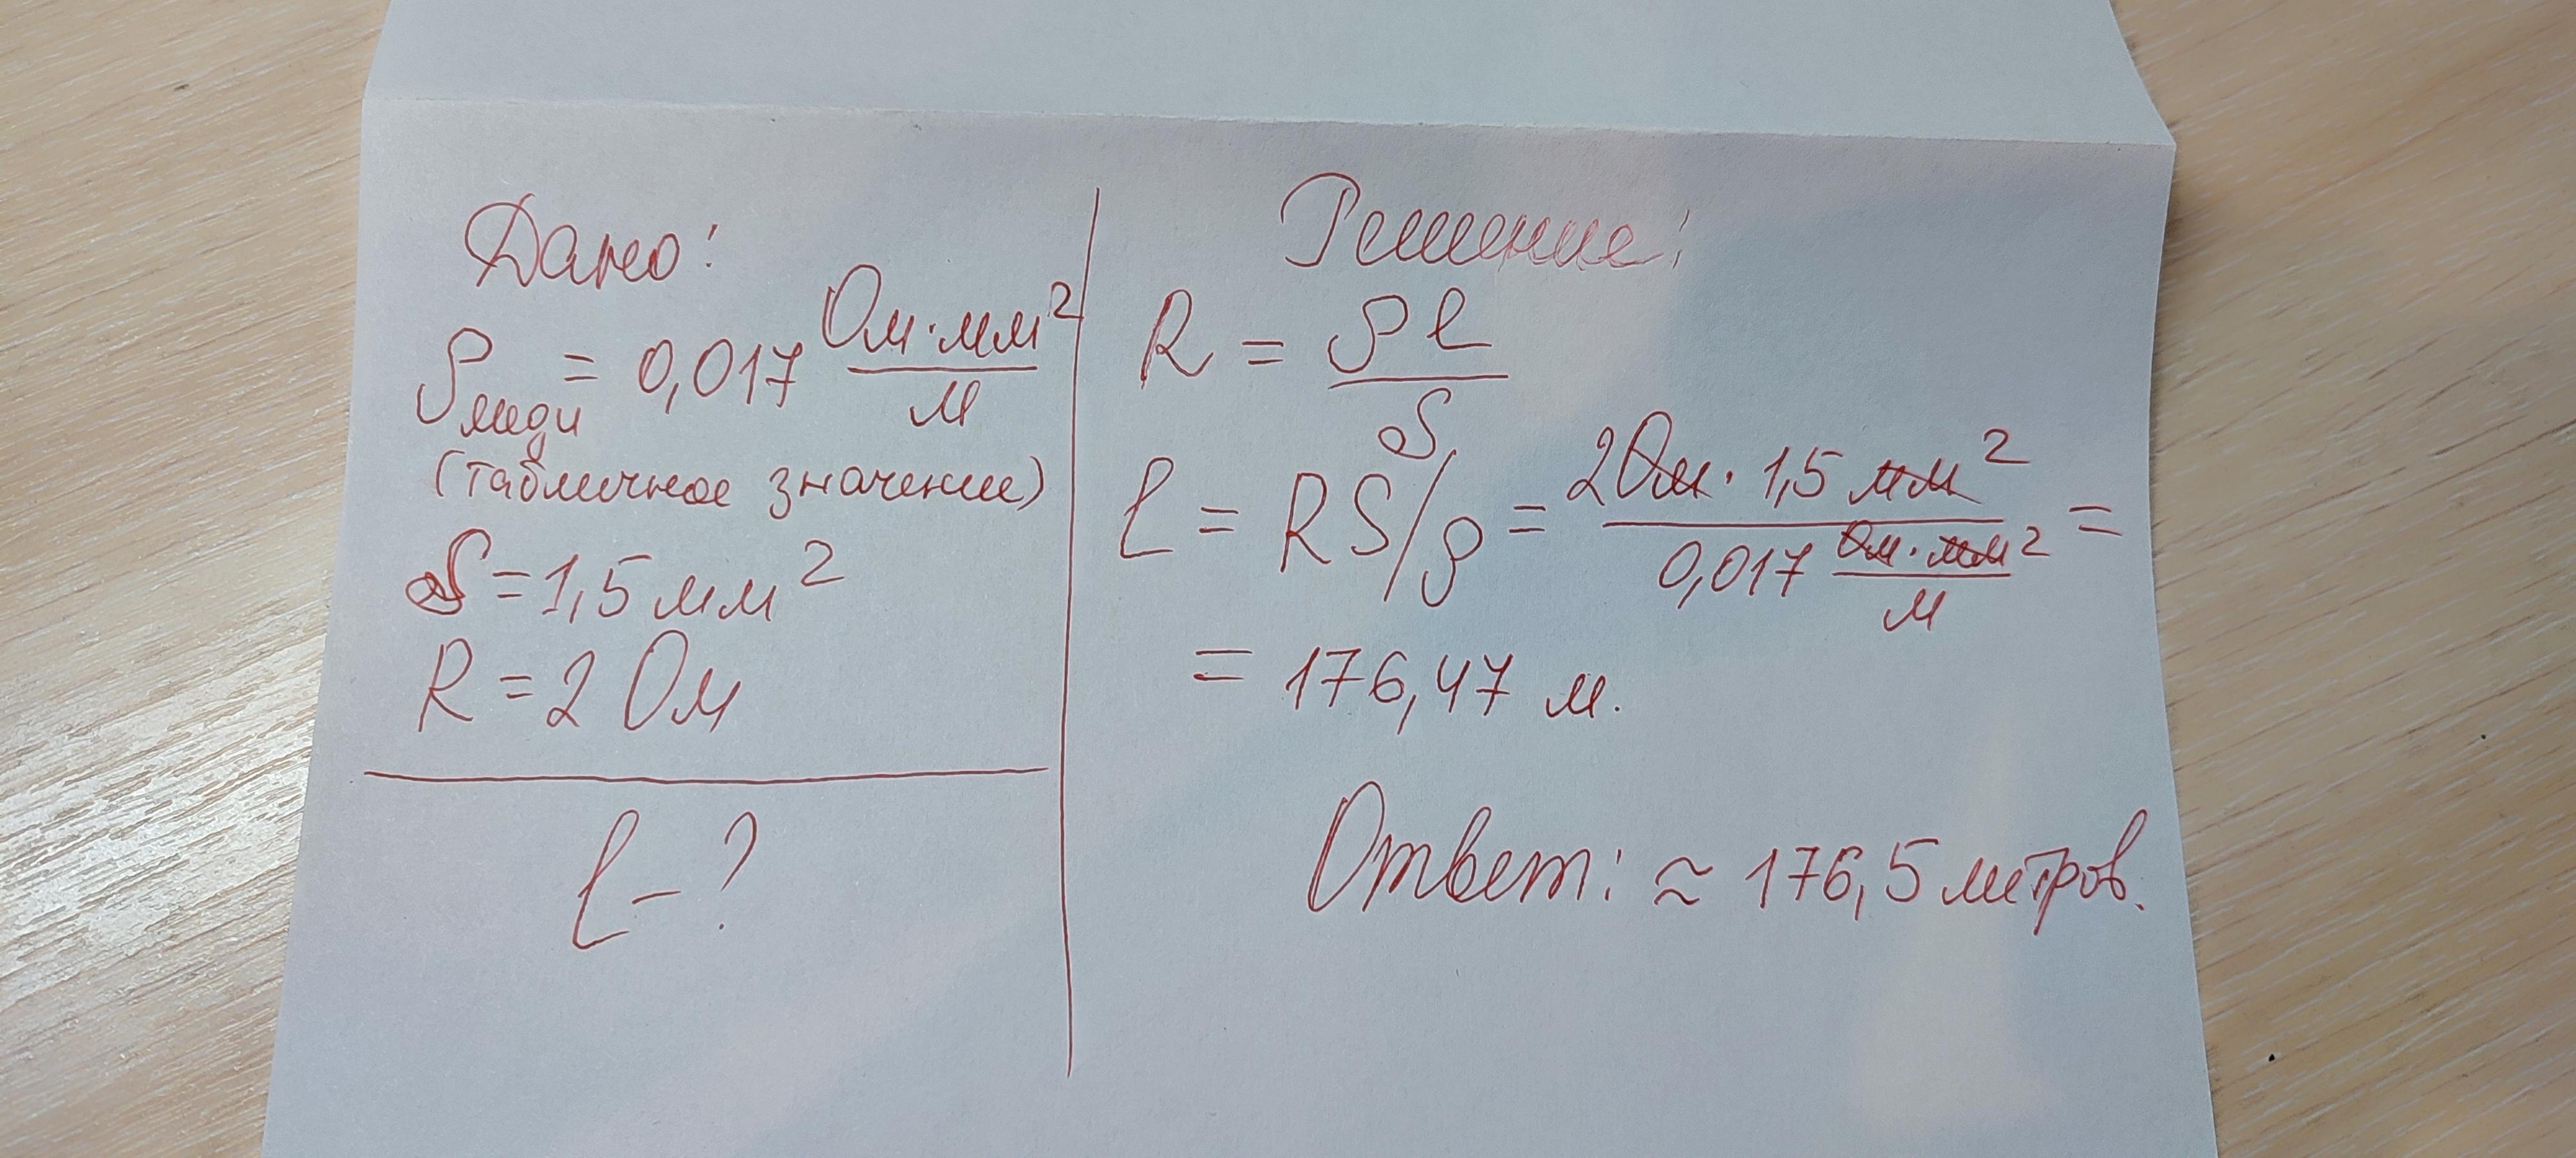 Дано:
ρ меди = 0,017 Ом·мм²/м
(табличное значение)
S = 1,5 мм²
R = 2 Ом
l - ?
Решение:
R = ρl/S
l = RS/ρ = 2Ом · 1,5 мм² / 0,017 Ом·мм²/м =
= 176,47 м.
Ответ: ≈ 176,5 метров.